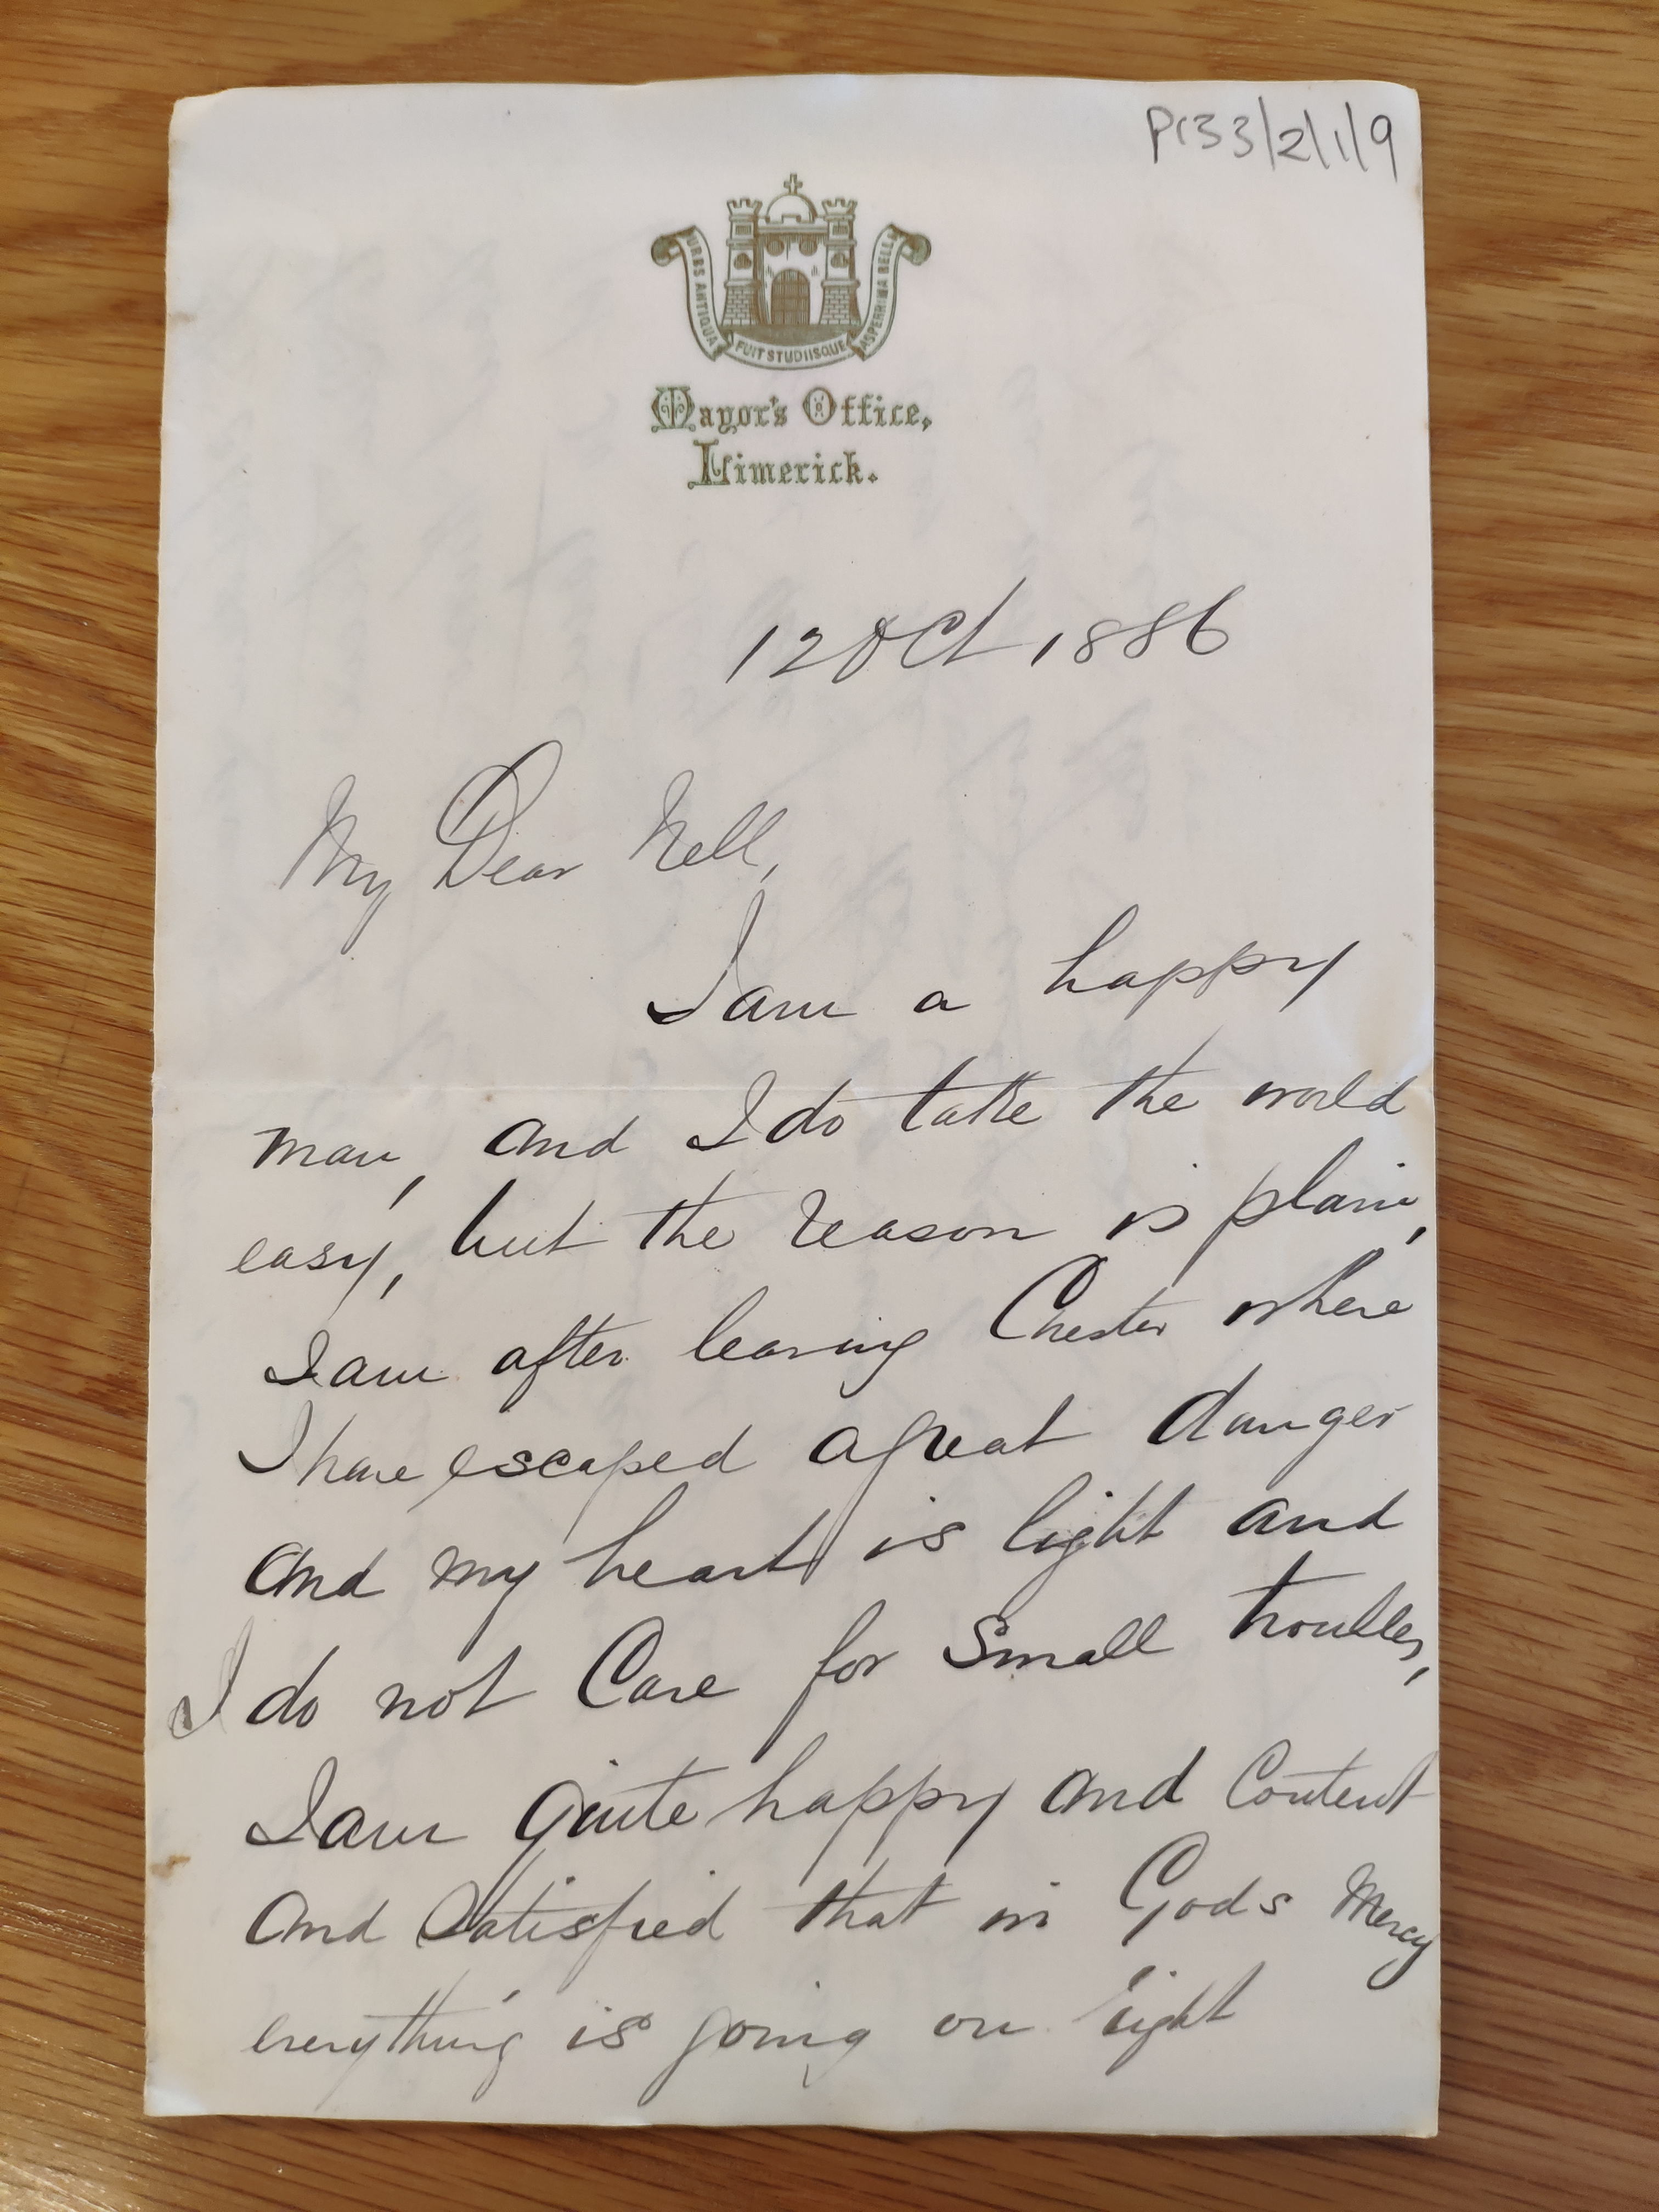 P133/2/1/9
URBS ANTIQUA FUIT STUDIISQUE ASPERRIMA BELLI
Mayor's Office,
Limerick.
12 Oct 1886
My Dear Nell,
I am a happy
man, and I do take the world
easy, but the reason is plain,
I am after leaving Chester where
I have escaped a great danger
and my heart is light and
I do not Care for Small troubles,
I am quite happy and Content
and Satisfied that in Gods Mercy
everything is going on right